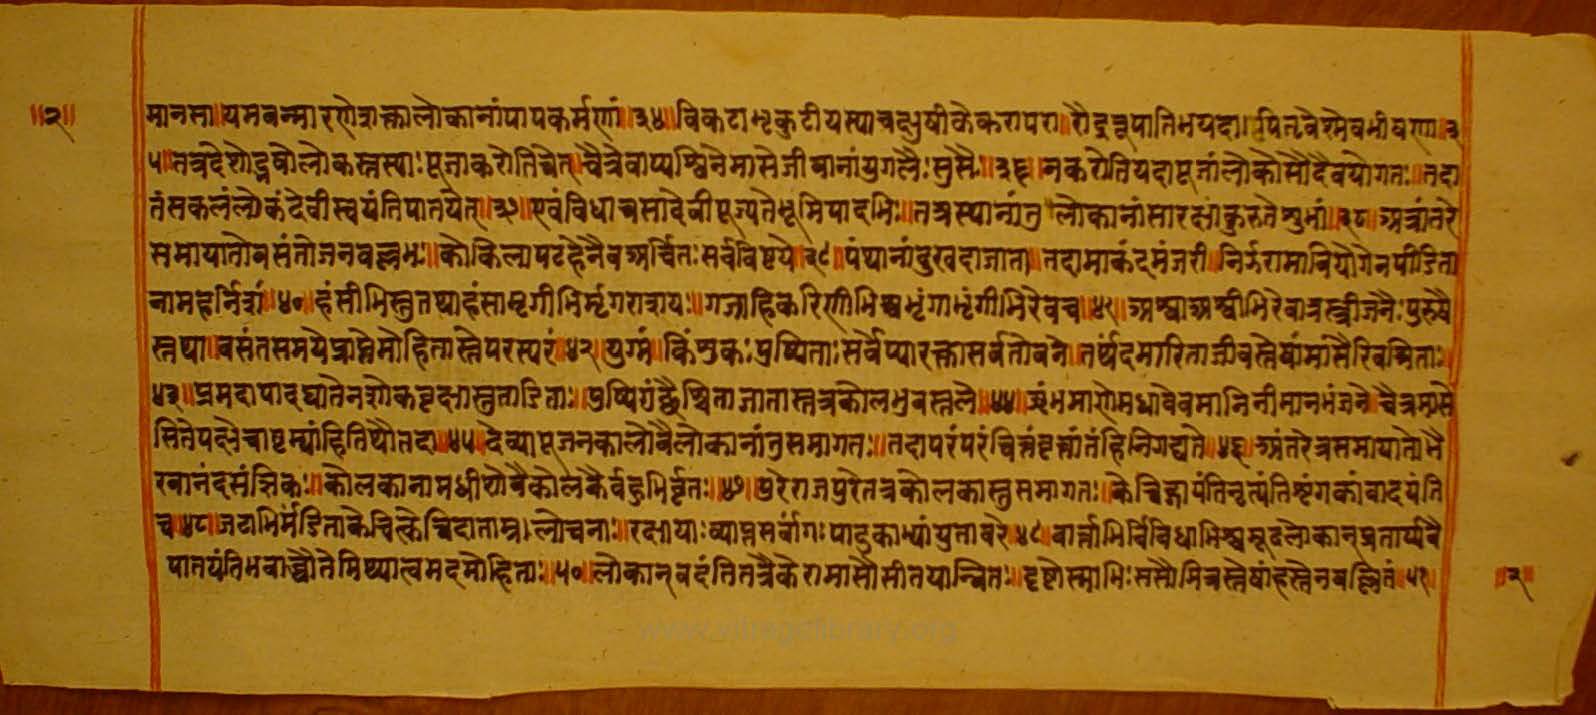 ॥२॥
मानसा॥यमवन्मारणेशक्तालोकानांपापकर्मणां॥३४॥विकटाभृकुटीयस्याचक्षुषीकेकरापरा॥रौद्ररूपातिभयदा॥पितृवेस्मेवभीषणा॥३
५॥तत्रदेशोद्भवोलोकस्तस्याःपूजाकरोतिचेत्॥चैत्रेवाप्यश्विनेमासेजीवानांयुगलैःसुसैः॥३६॥नकरोतियदापूजांलोकोसौदैवयोगतः॥तदा
तंसकलंलोकंदेवीस्वयंतिपातयेत्॥३७॥एवंविधात्रसादेवीपूज्यतेभूमिपादभिः॥तत्रस्यानांतु लोकानांसारक्षांकुरुतेशुभां॥३८॥अत्रांतरे
समायातोवसंतोजनवल्लभः॥कोकिलापटहेनैवअर्चितःसर्वविष्टपे॥३९॥पंथानांदुखदाजाता॥तदामाकंदमंजरी॥निर्भरामावियोगेनपीडिता
नामहर्निशं॥४०॥हंसीभिस्तुतथाहंसामृगीभिर्मृगराशयः॥गजाहिकरिणीभिश्चभृंगाभृंगीभिरेवच॥४१॥अश्वाअश्वीभिरेवात्रस्त्रीजनैःपुरुषै
स्तथा॥वसंतसमयेप्राप्तेमोहितास्तेपरस्परं॥४२॥युग्मं॥किंशुकःपुष्पिताःसर्वेप्यारक्तासर्वतोवने॥तर्थंदमारिताजीवस्तेषांमांसैरिवश्रिताः॥
४३॥प्रमदापादघातेनअशोकवृक्षास्तुताडिताः॥पुष्पिगंछैश्चिताजातास्तत्रकोलध्रुवस्तले॥४४॥जृंभमाणेमधावेवमानिनीमानभंजने॥चैत्रमासे
सितेपक्षेचाष्टम्यांहितिथौतदा॥४५॥देव्यापूजनकालोवैलोकानांतुसमागतः॥तदापरंपरंचित्तंवृत्तांतंहिनिगद्यते॥४६॥अंतरेत्रसमायातोभै
रवानंदसंज्ञिकः॥कौलकानामधीशोवैकौलकैर्वहुभिर्वृतः॥४७॥पुरेराजपुरेतत्रकौलकास्तुसमागतः॥केचिद्गायंतिनृत्यंतिशृंगकांवादयंति
च॥४८॥जटाभिर्मंडिताकेचित्केचिदाताम्रालोचनाः॥रक्षायाःव्याप्तसर्वांगःपादुकाभ्यांयुतावरे॥४९॥वार्त्ताभिर्विविधाभिश्चमूढलोकान्प्रतार्य्यवै
पातयंतिभवाब्धौतेमिथ्यात्वमदमोहिताः॥५०॥लोकान्वदंतितत्रैकेरामासौसीतयान्वितः॥दृष्टोस्माभिःससौमित्रस्तेषांहस्तेनवल्लितं॥५१॥
॥२॥
www.vitragelibrary.org